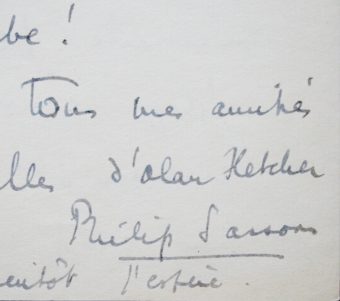 be !
Tous mes amitiés
lles d'Alan Fletcher
Philip Sassoon
entôt j'espère.